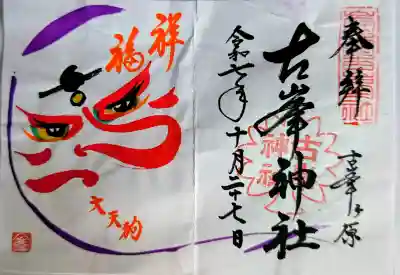 奉拝
古峯ヶ原
古峯神社
古峯神社
令和七年十月二十七日
祥福
大天狗